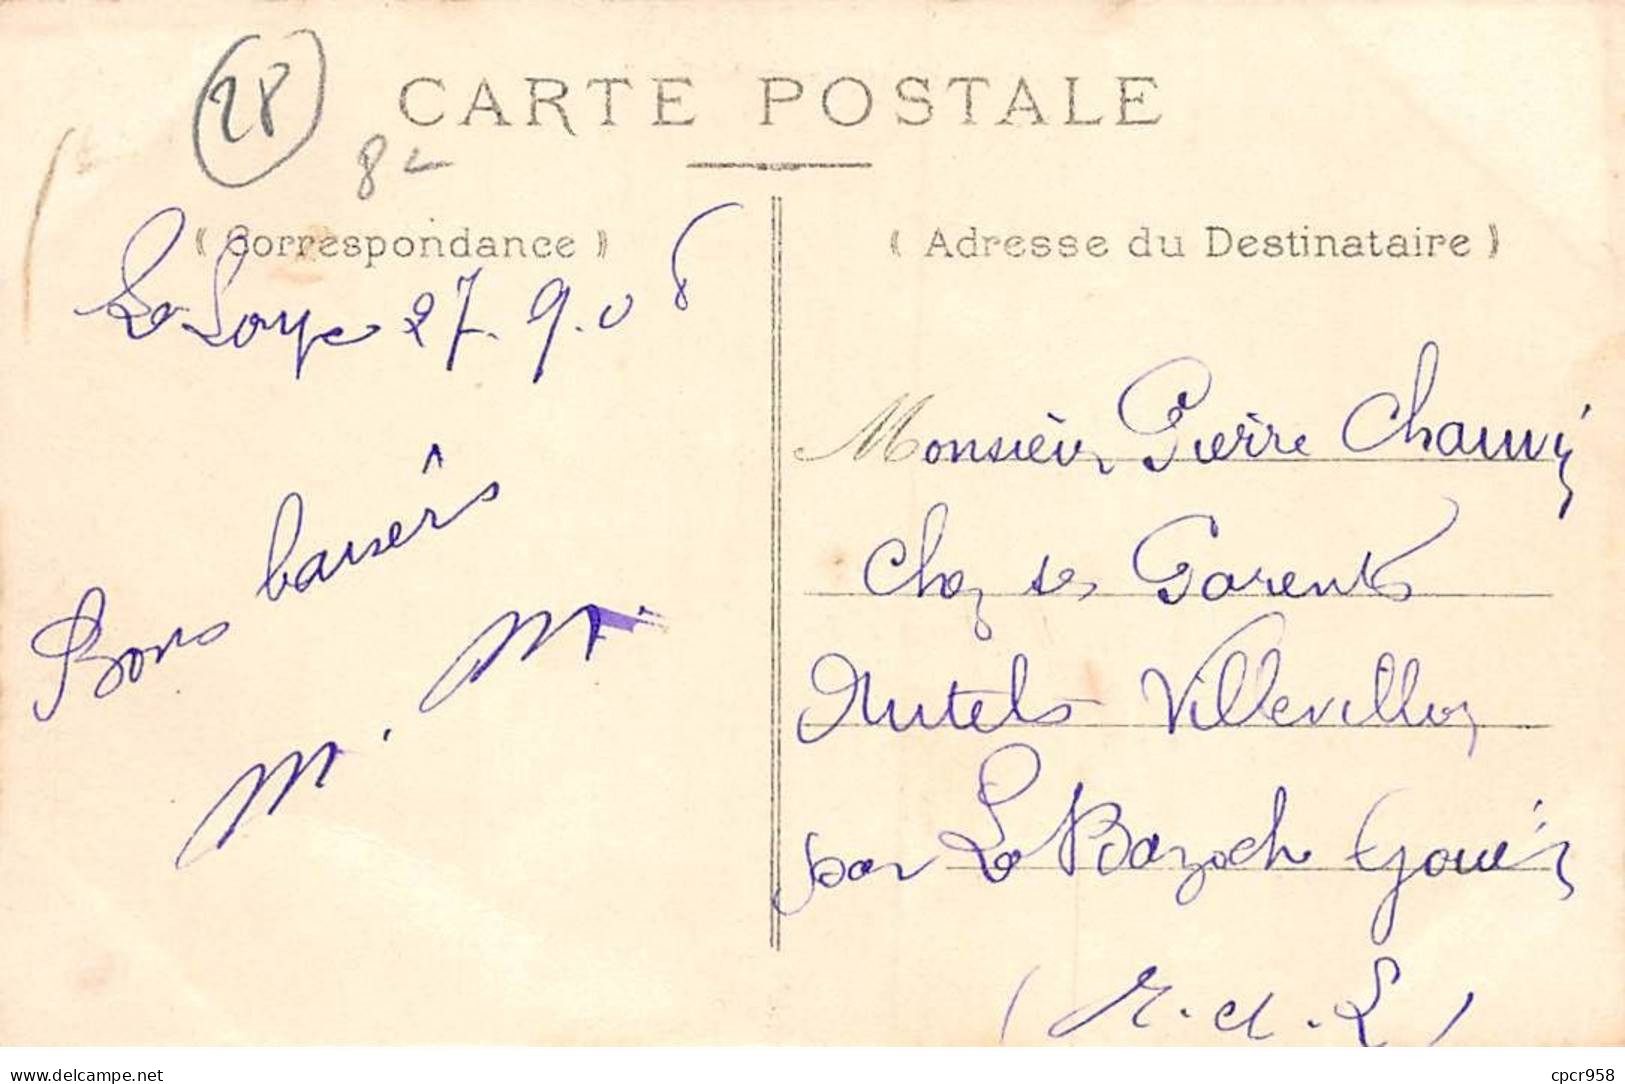 28
8
CARTE POSTALE
( Correspondance )
La Loupe 27.9.06
Bons baisers
M. M.
( Adresse du Destinataire )
Monsieur Pierre Chauvin
Chez ses Parents
Autels Villevillon
par La Bazoche Gouët
( E. et. L )
delcampe.net
cpcr958